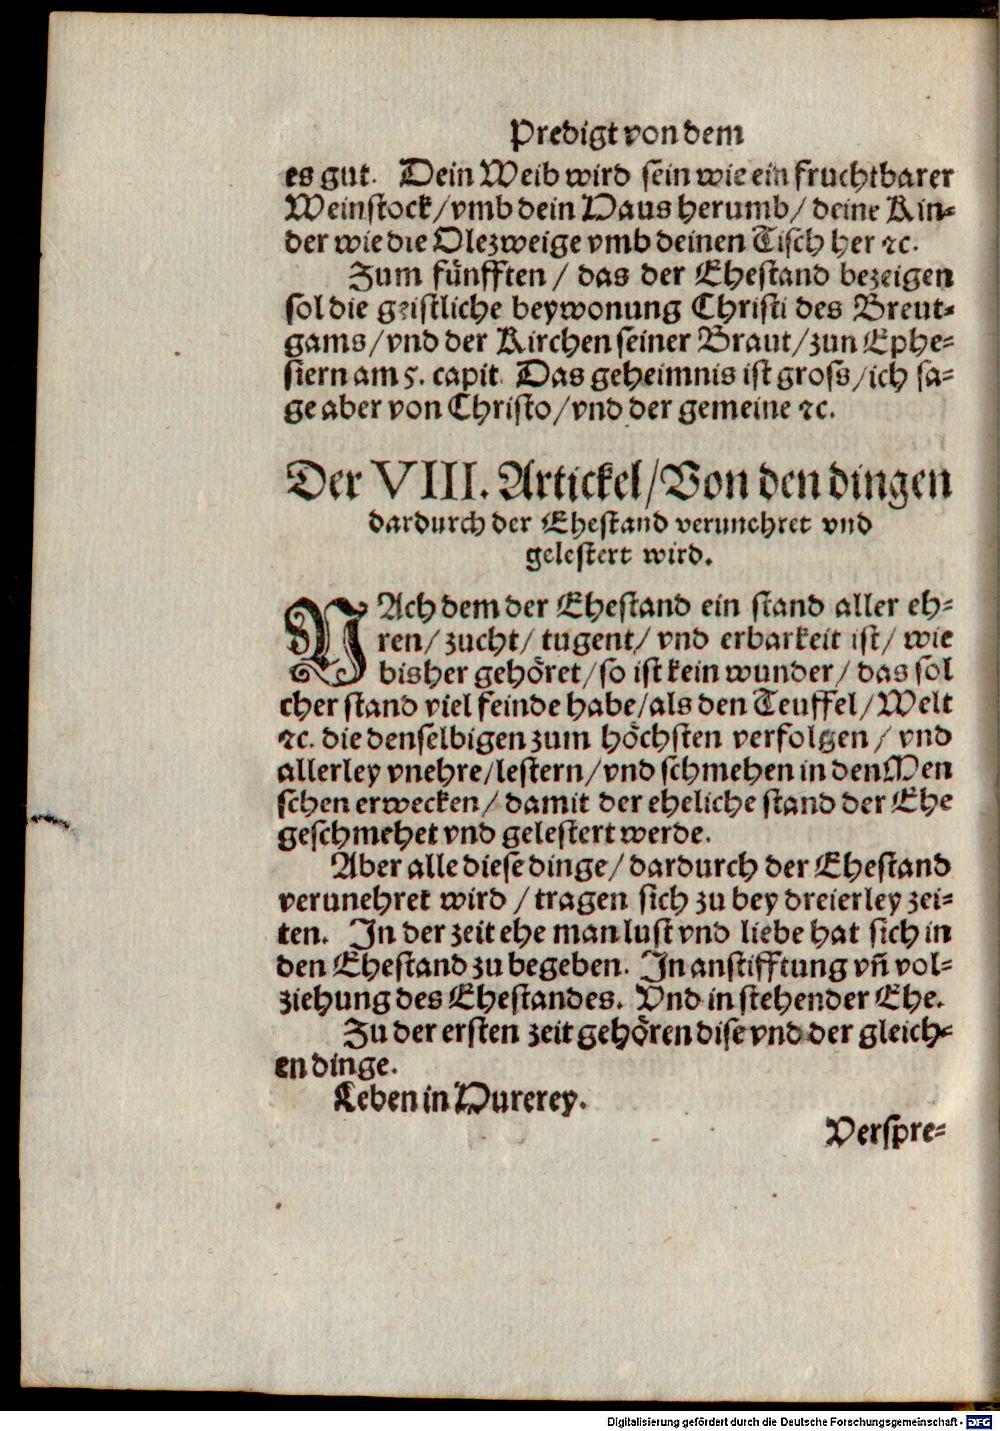 Predigt von dem
es gut. Dein Weib wird sein wie ein fruchtbarer
Weinstock/vmb dein Haus herumb/ deine Kin-
der wie die Olezweige vmb deinen Tisch her ꝛc.
Zum fünfften/ das der Ehestand bezeigen
sol die geistliche beywonung Christi des Breut-
gams/vnd der Kirchen seiner Braut/zun Ephe-
siern am 5. capit. Das geheimnis ist gross/ich sa-
ge aber von Christo/vnd der gemeine ꝛc.
Der VIII. Artickel/Von den dingen
dardurch der Ehestand verunehret vnd
gelestert wird.
NAch dem der Ehestand ein stand aller eh-
ren/ zucht/ tugent/ vnd erbarkeit ist/ wie
bisher gehöret/so ist kein wunder/ das sol
cher stand viel feinde habe/als den Teuffel/Welt
ꝛc. die denselbigen zum höchsten verfolgen/ vnd
allerley vnehre/lestern/vnd schmehen in den Men
schen erwecken/ damit der eheliche stand der Ehe
geschmehet vnd gelestert werde.
Aber alle diese dinge/ dardurch der Ehestand
verunehret wird/ tragen sich zu bey dreierley zei-
ten. In der zeit ehe man lust vnd liebe hat sich in
den Ehestand zu begeben. In anstifftung vñ vol-
ziehung des Ehestandes. Vnd in stehender Ehe.
Zu der ersten zeit gehören dise vnd der gleich-
en dinge.
Leben in Hurerey.
Verspre-
Digitalisierung gefördert durch die Deutsche Forschungsgemeinschaft - DFG